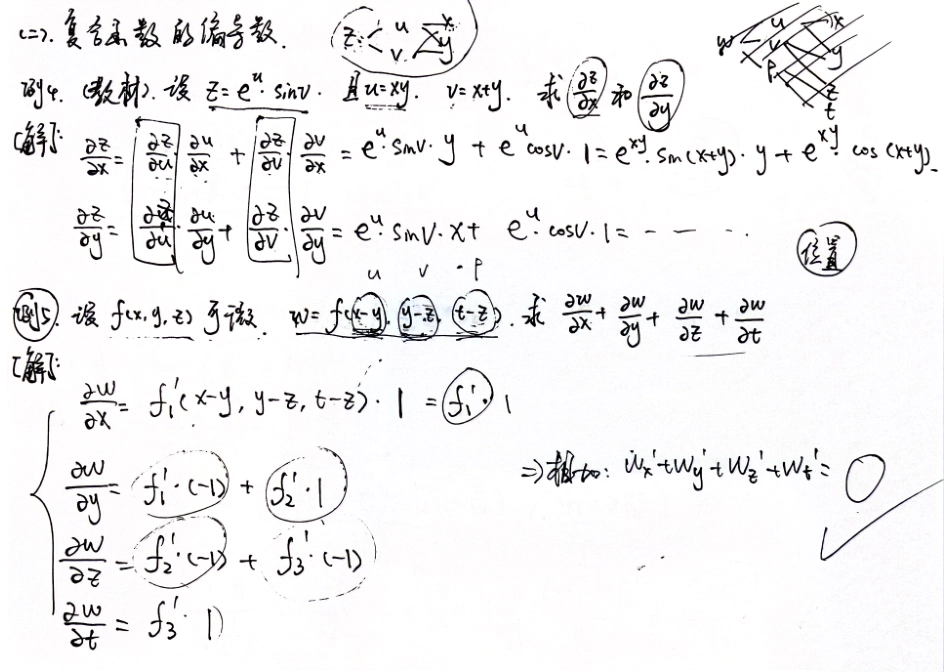 (二). 复合函数的偏导数. z< u v x y
w u v p x y z t
例4. (教材). 设 z=e^u·sinv. 且u=xy. v=x+y. 求 ∂z/∂x 和 ∂z/∂y
[解]: ∂z/∂x = ∂z/∂u · ∂u/∂x + ∂z/∂v · ∂v/∂x = e^u·sinv·y + e^u cosv·1 = e^xy·sin(x+y)·y + e^xy·cos(x+y).
∂z/∂y = ∂z/∂u · ∂u/∂y + ∂z/∂v · ∂v/∂y = e^u·sinv·x + e^u·cosv·1 = - - ...
位置
u v ·p
例5. 设 f(x,y,z) 可微. w=f(x-y, y-z, t-z). 求 ∂w/∂x + ∂w/∂y + ∂w/∂z + ∂w/∂t
[解]:
∂w/∂x = f₁'(x-y, y-z, t-z)·1 = f₁'·1
∂w/∂y = f₁'·(-1) + f₂'·1
⇒相加: Wx'+Wy'+Wz'+Wt'=0
∂w/∂z = f₂'·(-1) + f₃'·(-1)
∂w/∂t = f₃'·1